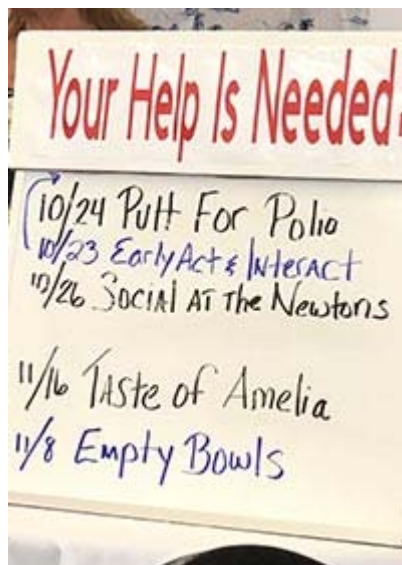 Your Help Is Needed
10/24 Putt For Polio
10/23 Early Act & Interact
10/26 Social at the Newtons
11/16 Taste of Amelia
11/8 Empty Bowls